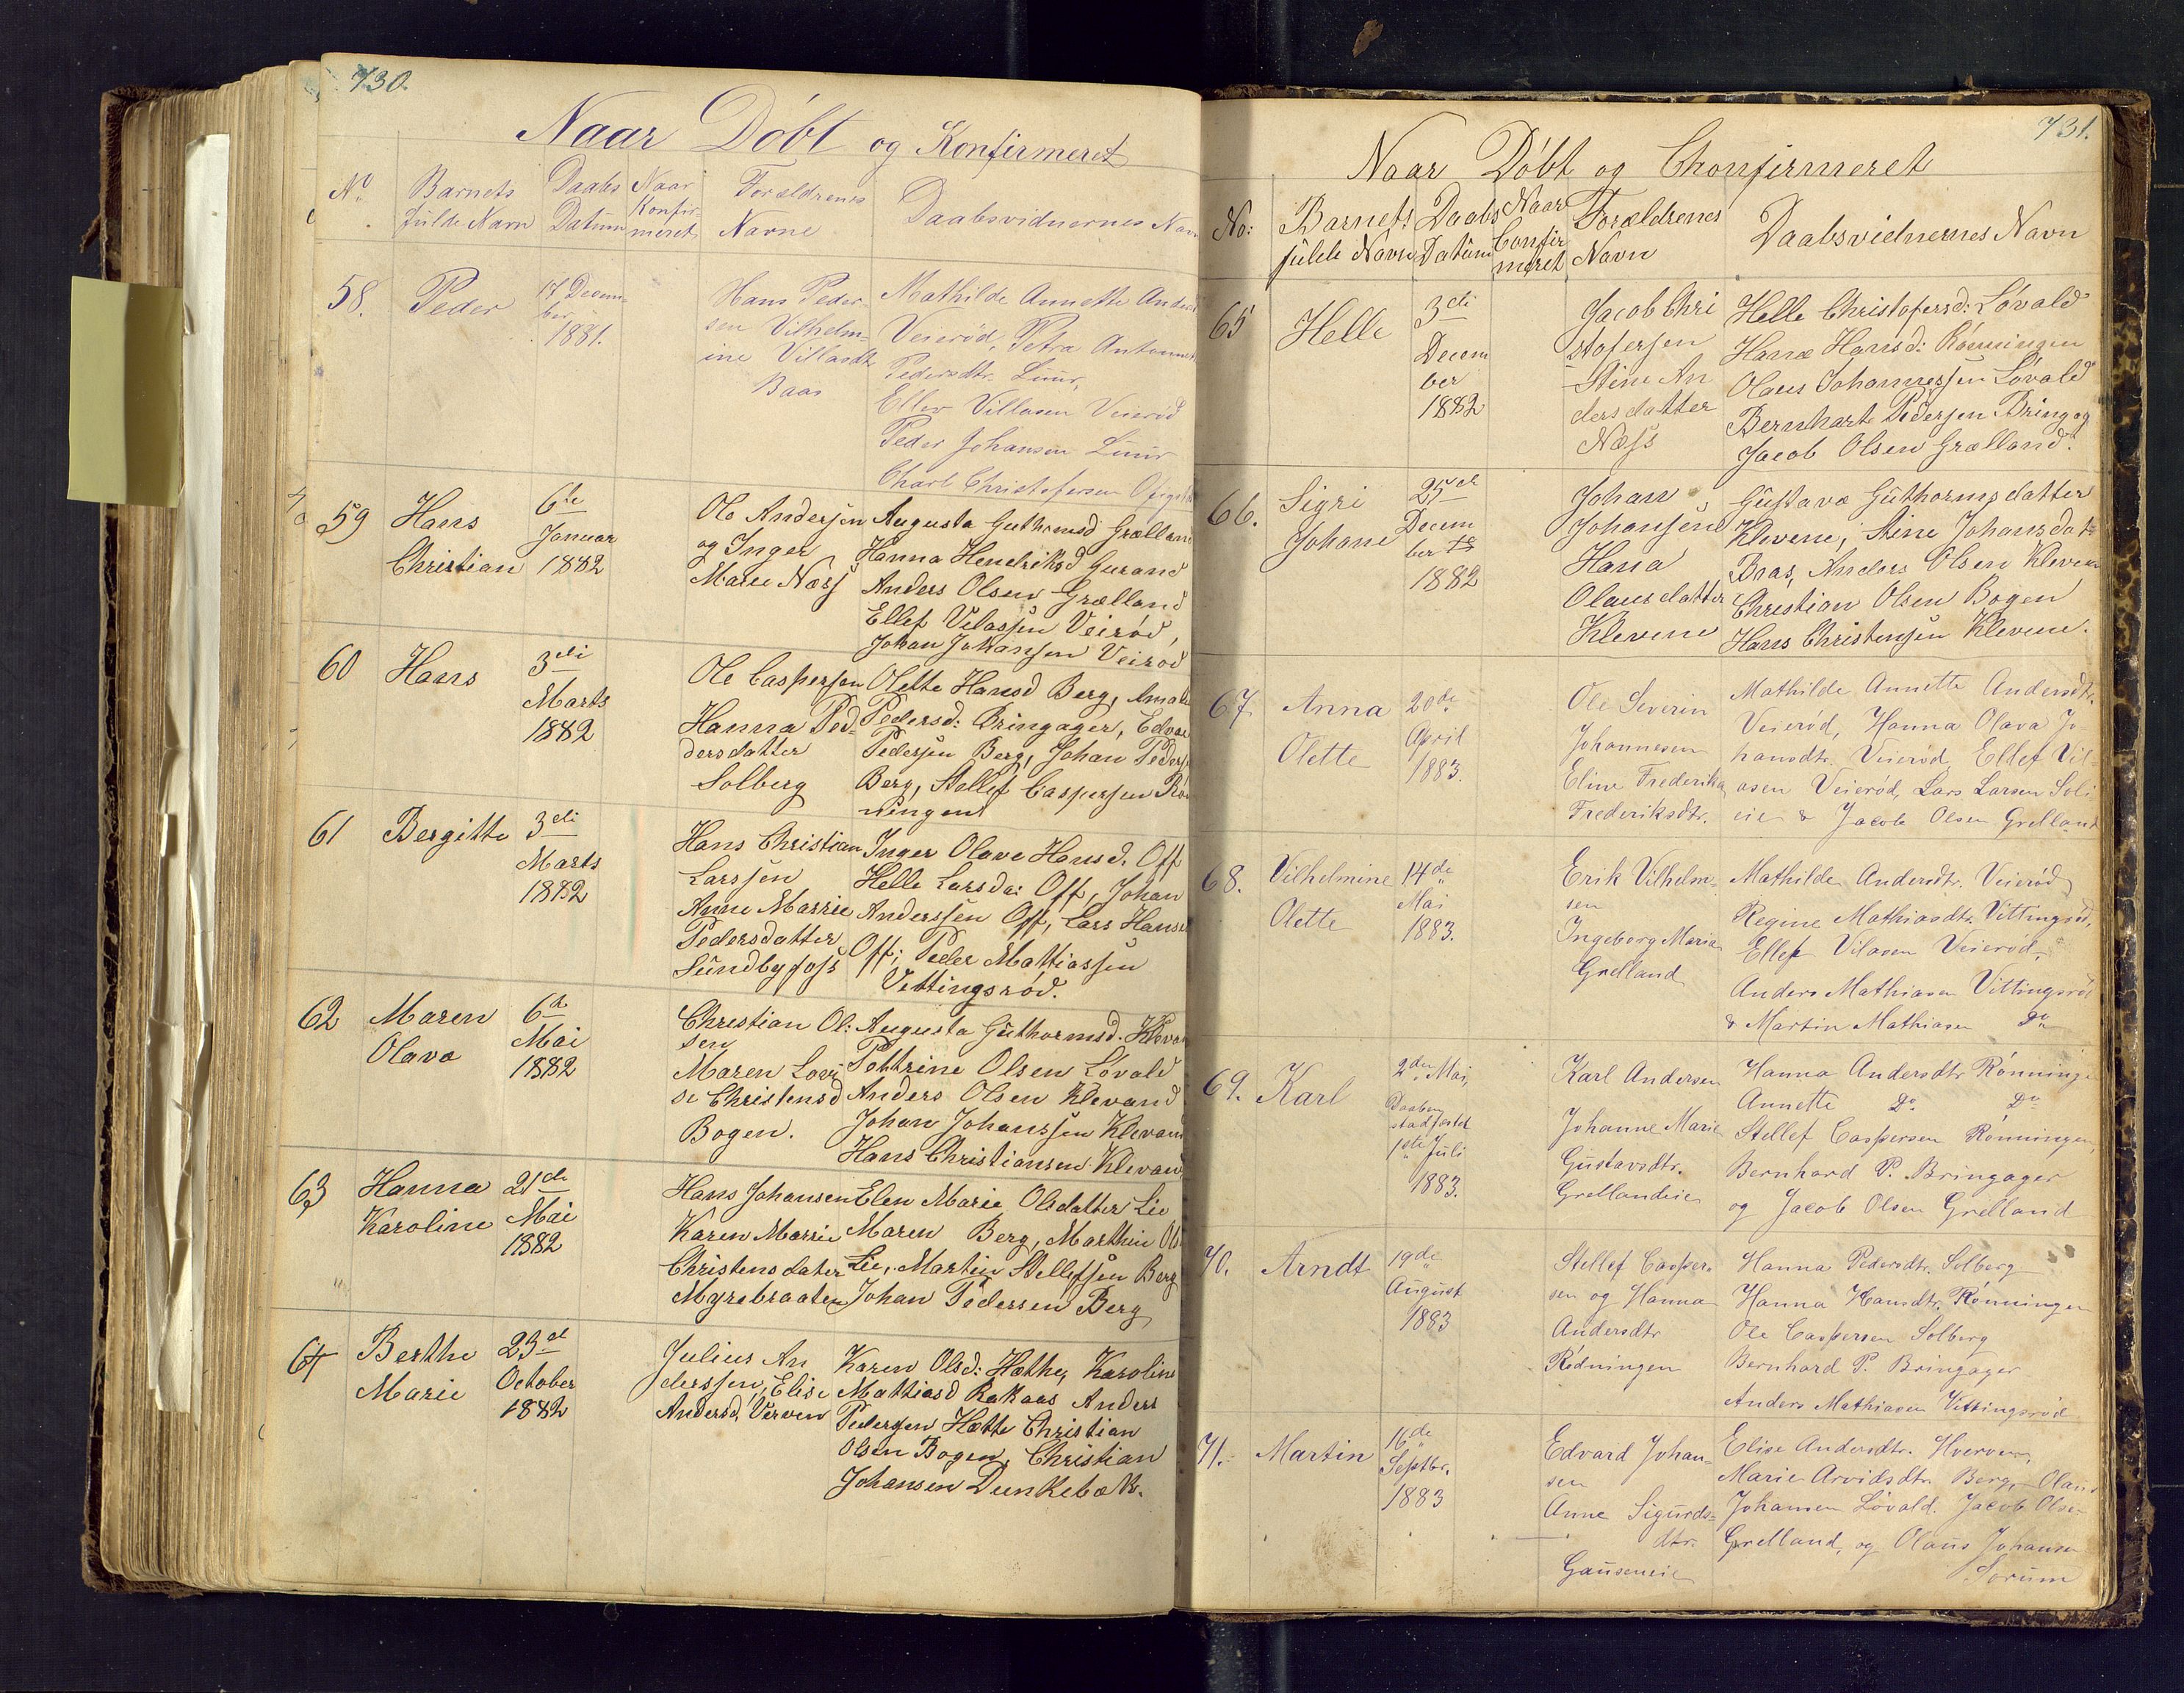 730.
Naar Döbt og Konfirmeret
No. Barnets fulde Navn
Daabs Datum
Naar Konfirmeret
Forældrenes Navne
Daabsvidnernes Navn
58. Peder
17 Decem-
ber
1881.
Hans Peder
sen Vilhelm-
ine Villasdtr
Baas
Mathilde Annette Anders
Veieröd, Petra Antonnet
Pedersdtr. Luur,
Ellev Villasen Veieröd
Peder Johansen Luur
Charl Christofersen
59 Hans
Christian
6te
Januar
1882
Ole Andersjen
og Inger
Marie Næss
Augusta Guthormsd Grælland
Hanna Hendriksd Gurand
Anders Olsen Grælland
Ellef Velassen Veiröd,
Johan Johansjen Veiröd
60 Hans
3di
Marts
1882
Ole Caspersen
Hanna Ped-
dersdatter
Solberg
Olette Hansd Berg, Amalie
Pedersd: Bringager, Edvar
Pedersjen Berg, Johan Peders
Berg, Stellef Caspersen Rön
ningen
61 Bergitte
3di
Marts
1882
Hans Christian
Larssen
Anne Marrie
Pedersdatter
Sundbyfoss
Inger Olave Hansd. Off
Helle Larsda: Off, Johan
Anderssen Off, Lars Hanse
Off; Peder Mattiassen
Vettingsröd.
62 Maren
Olava
6te
Mai
1882
Christian Ol:
sen
Maren Lovi
se Christensd
Bogen.
Augusta Guthormsd. Klevan
Pettrine Olsen Lövald
Anders Olsen Klevand
Johan Johanssen Klevan
Hans Christiansen Klevan
63 Hanna
Karoline
21de
Mai
1882
Hans Johansen
Karen Marrie
Christensdater
Myrebraaten
Elen Marie Olsdatter Lie
Maren Berg, Marthin Ols
Lie, Martin Stellefsen Berg
Johan Pedersen Berg
64 Berthe
Marie
23de
October
1882
Julius An
derssen, Elise
Andersd. Verven
Karen Olsd: Hæthe, Karoline
Mattiasd Rakaas Anders
Pedersen Hætte Christian
Olsen Bogen, Christian
Johansen Dunkebæk.
731.
Naar Döbt og Chonfirmeret
No: Barnets fulde Navn
Daabs Datum
Naar Confir meret
Forældrenes Navn
Daabsvidnernes Navn
65 Helle
3di
Decem
ber
1882
Jacob Chri
stofersen
Stine An
dersdatter
Næss
Helle Christofersd: Lövald
Hane Hansd: Rönningen
Olaus Johannessen Lövald
Bernhart Pedersen Bringag
Jacob Olsen Grælland.
66. Sigri
Johane
25de
Decem
ber
1882
Johan
Johansene
Hana
Olausdatter
Klevene
Gustava Guthormsdatter
Klevene, Stine Johansdat
Bras, Anders Olsen Kleven
Christian Olsen Bogen
Hans Christensjen Klevene.
67. Anna
Olette
20de
April
1883.
Ole Severin
Johannesen
Eline Frederika
Frederiksdtr.
Mathilde Annette Andersdtr.
Veieröd, Hanna Olava Jo-
hansdtr. Veieröd, Ellef Vil-
asen Veieröd, Lars Larsen Soli
eie & Jacob Olsen Grelland
68. Vilhelmine
Olette
14de
Mai
1883.
Erik Vilhelm-
sen
Ingeborg Maria
Grelland
Mathilde Andersdtr. Veieröd
Regine Mathiasdtr. Vittingsröd,
Ellef Vilasen Veieröd,
Anders Mathiasen Vittingsröd
& Martin Mathiasen Do
69. Karl
2den Mai,
Daaben
stadfæstet
1ste Juli
1883.
Karl Andersen
Johanne Marie
Gustavsdtr.
Grellandeie
Hanna Andersdtr Rönninge
Annette Do. Do
Stellef Caspersen Rönningen,
Bernhard P. Bringager
og Jacob Olsen Grelland
70. Arndt
19de
August
1883
Stellef Casper-
sen og Hanna
Andersdtr
Rödningen
Hanna Pedersdtr. Solberg
Hanna Hansdtr. Rönningen
Ole Caspersen Solberg
Bernhard P. Bringager
Anders Mathiasen Vettingsröd
71. Martin
16de
Septbr.
1883
Edvard Johan-
sen
Anne Sigurds-
dtr.
Gauseneie
Elise Andersdtr. Hverven,
Marie Arvidsdtr. Berg, Olaus
Johansen Lövald. Jacob Olsen
Grelland, og Olaus Johansen
Sorum